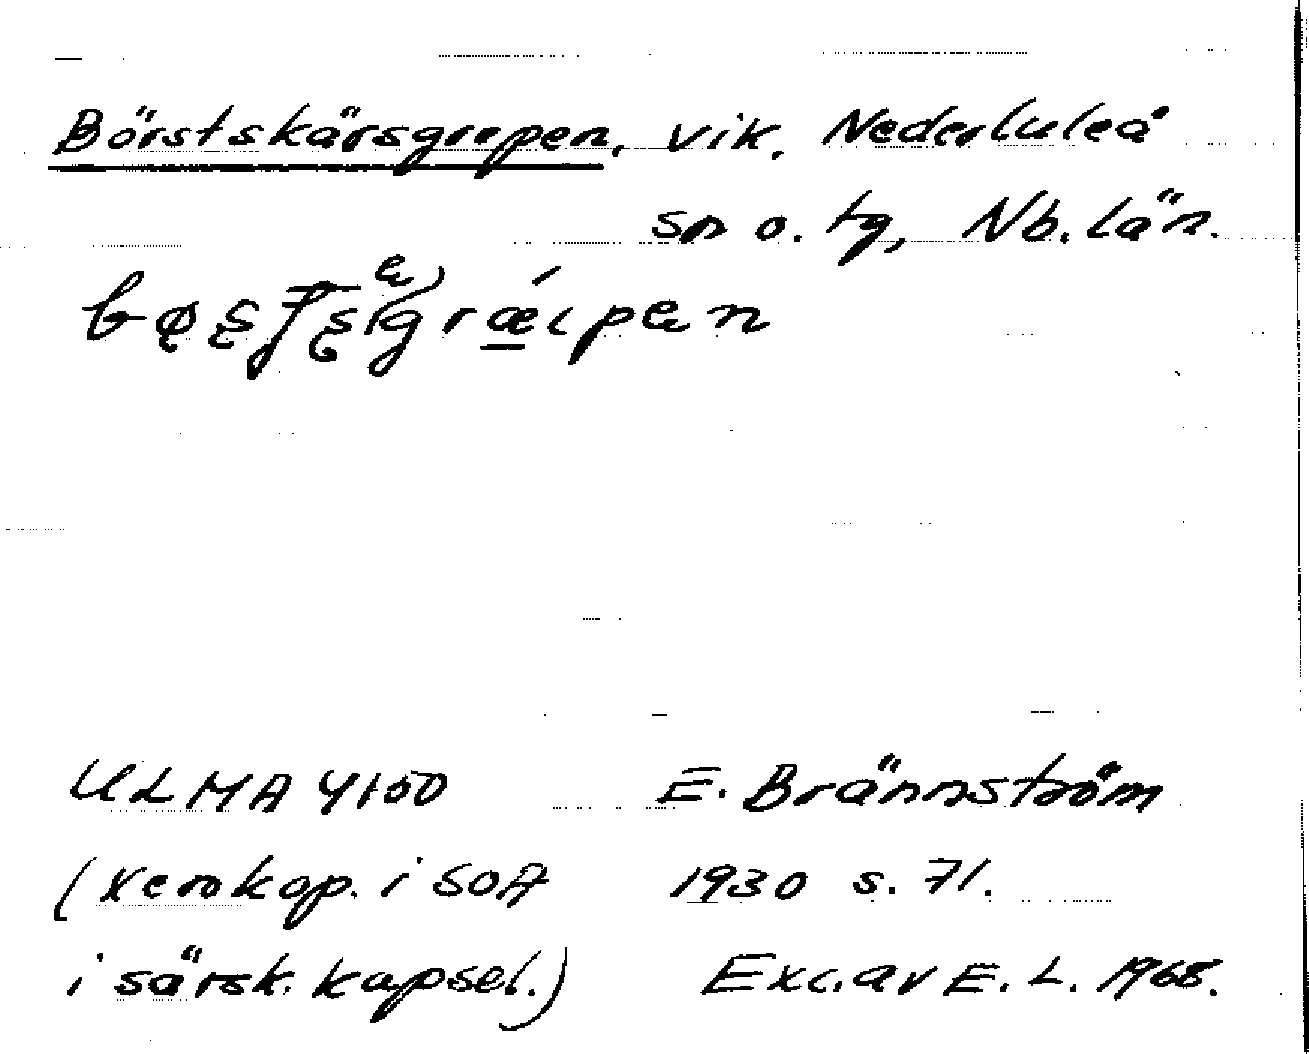 Börstskärsgrepen, vik, Nederluleå
sn o. tg, Nb. län.
ULMA 4150 E. Brännström
(Xerokop. i SOA 1930 s. 71.
i särsk. kapsel.) Exc. av E. L. 1968.